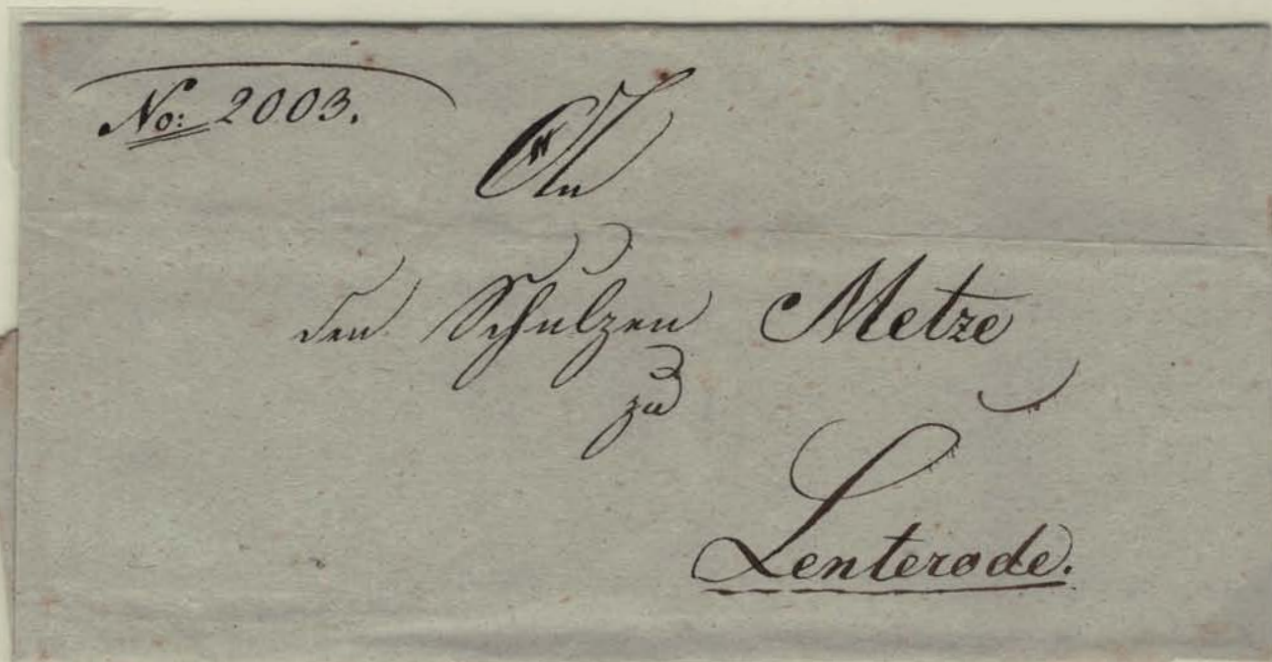 No: 2003.
An
den Schulzen Metze
zu
Lenterode.